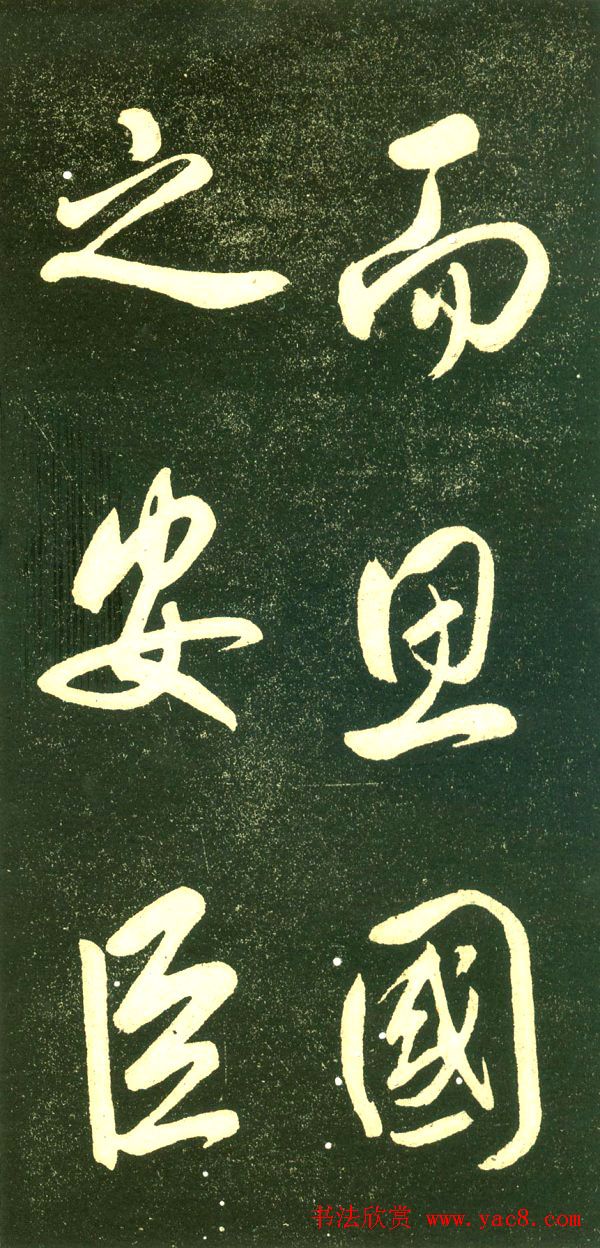 而思國
之安臣
书法欣赏 www.yac8.com